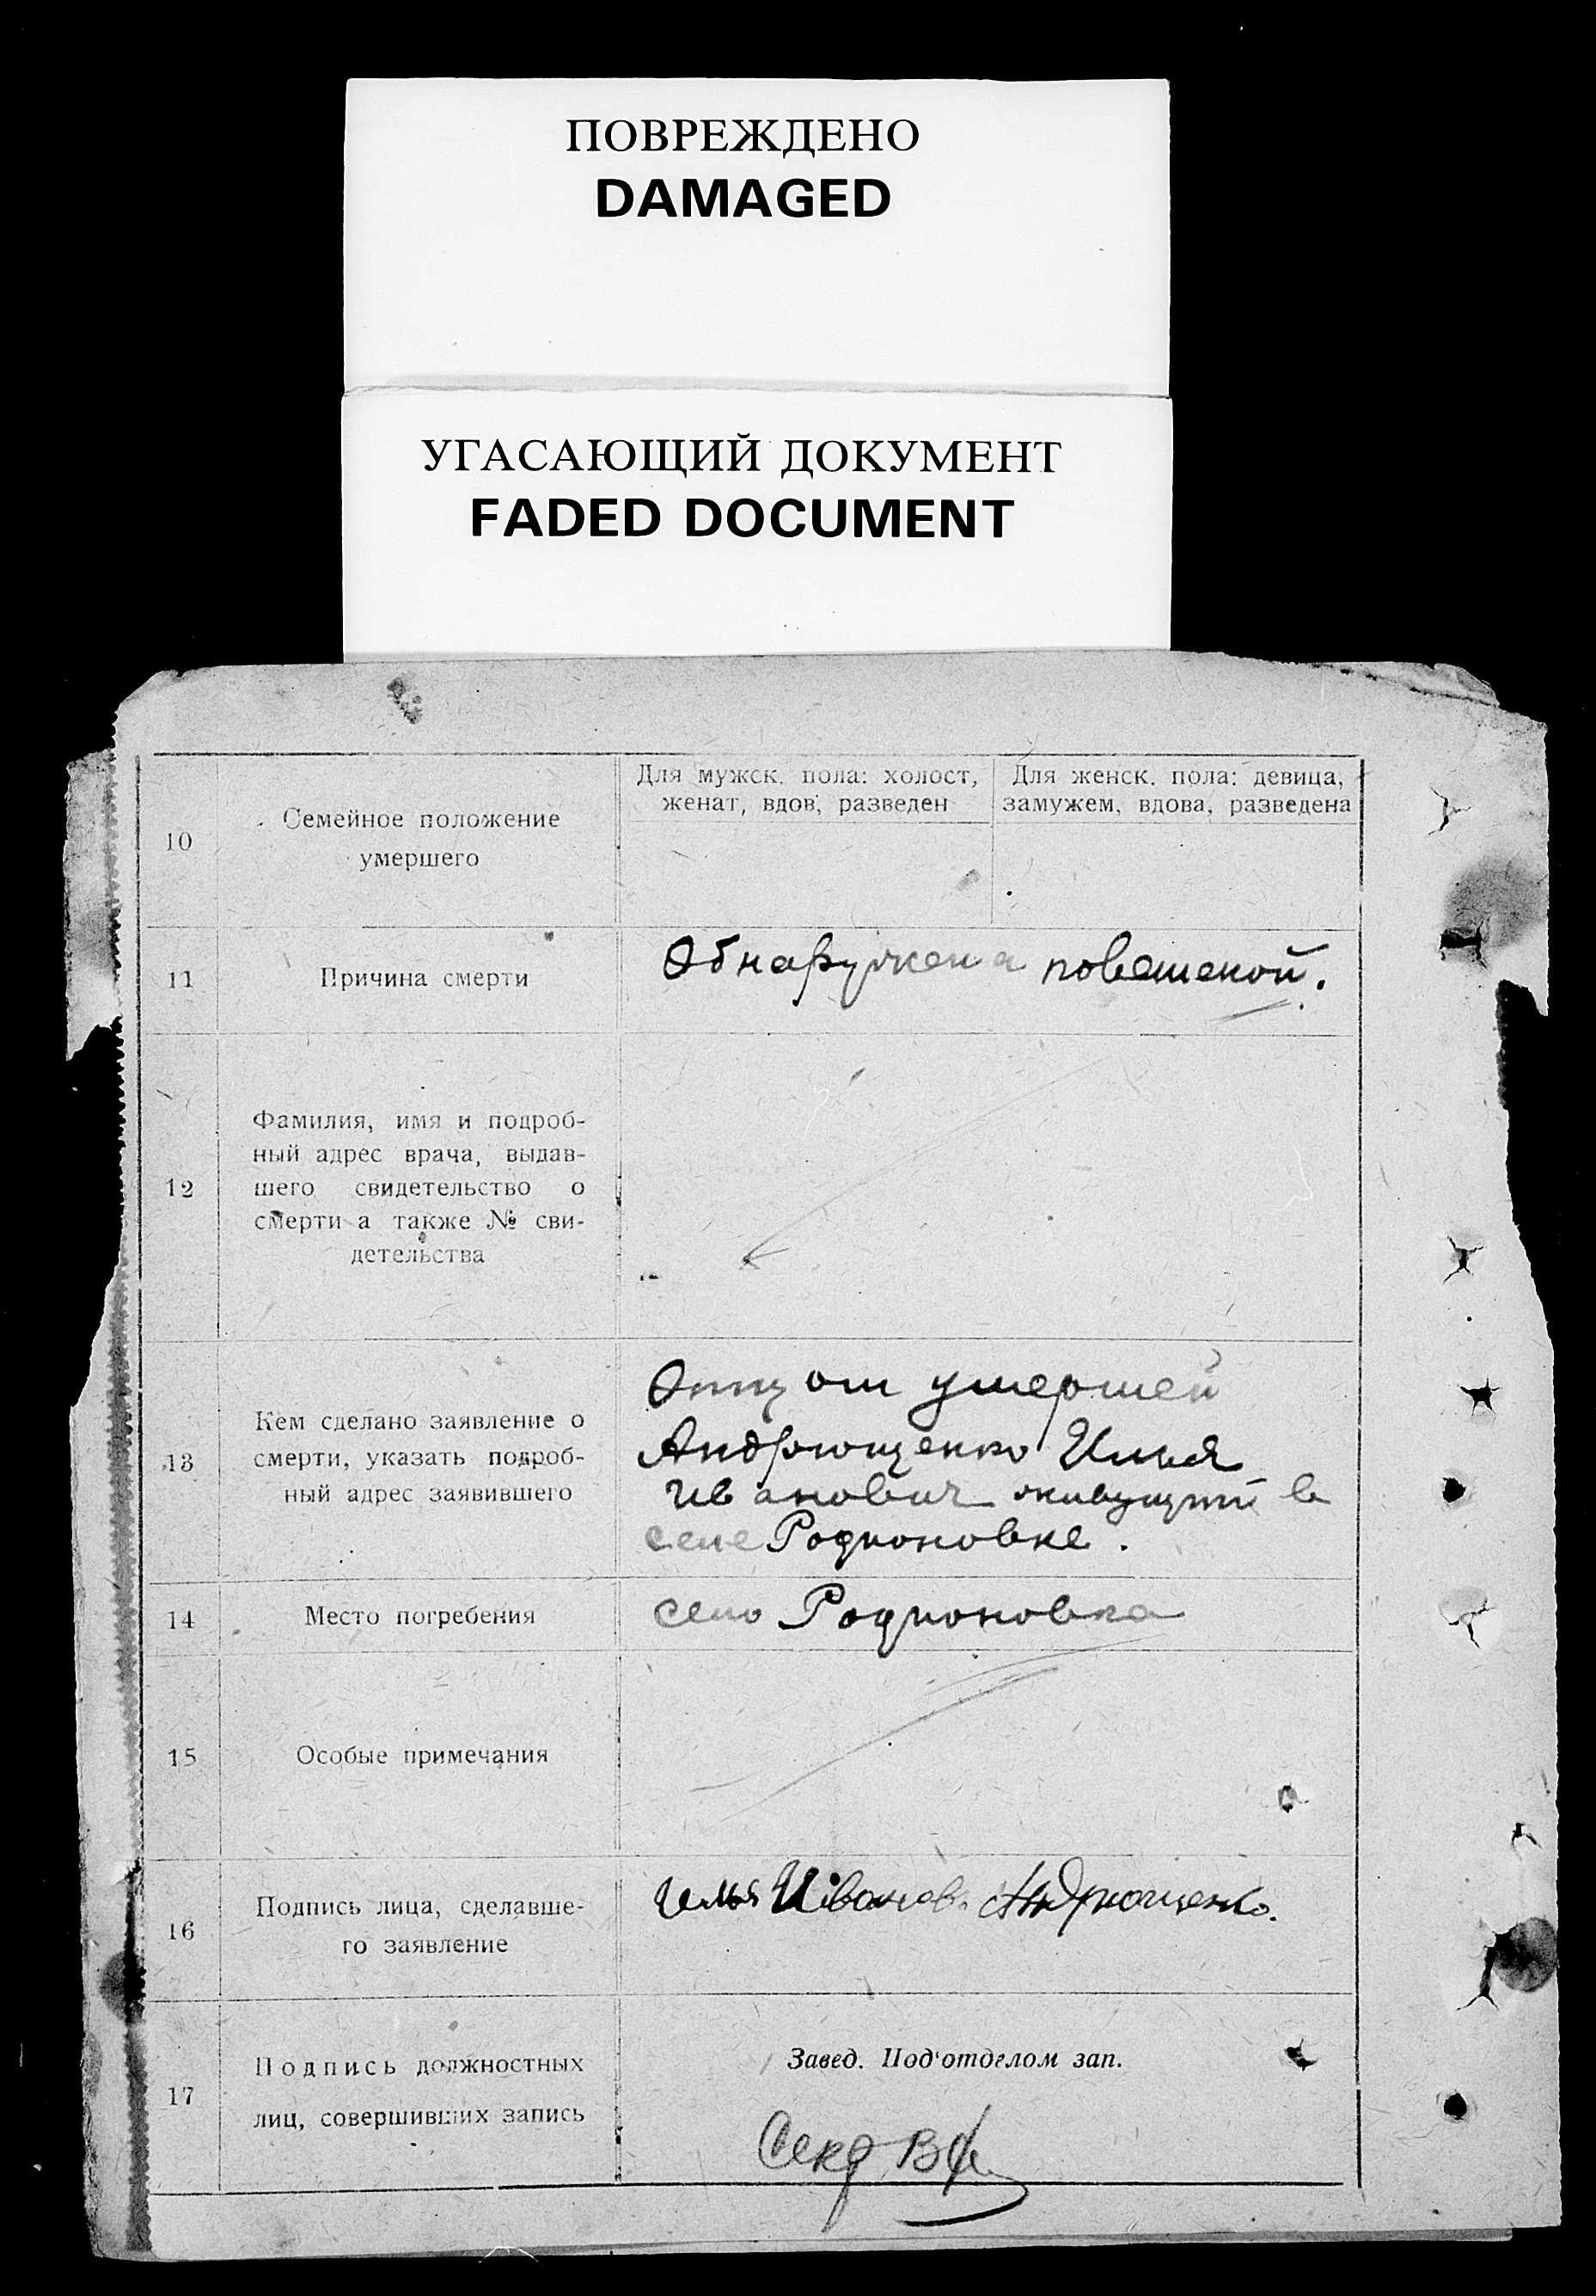 ПОВРЕЖДЕНО
DAMAGED
УГАСАЮЩИЙ ДОКУМЕНТ
FADED DOCUMENT
10
Семейное положение
умершего
Для мужск. пола: холост,
женат, вдов, разведен
Для женск. пола: девица,
замужем, вдова, разведена
11
Причина смерти
Обнаружена повешеной.
12
Фамилия, имя и подроб-
ный адрес врача, выдав-
шего свидетельство о
смерти а также № сви-
детельства
13
Кем сделано заявление о
смерти, указать подроб-
ный адрес заявившего
Отцом умершей
Андрющенко Илья
Иванович живущий в
селе Родионовке.
14
Место погребения
село Родионовка
15
Особые примечания
16
Подпись лица, сделавше-
го заявление
Илья Иванов. Андрющенко.
17
Подпись должностных
лиц, совершивших запись
Завед. Под'отделом зап.